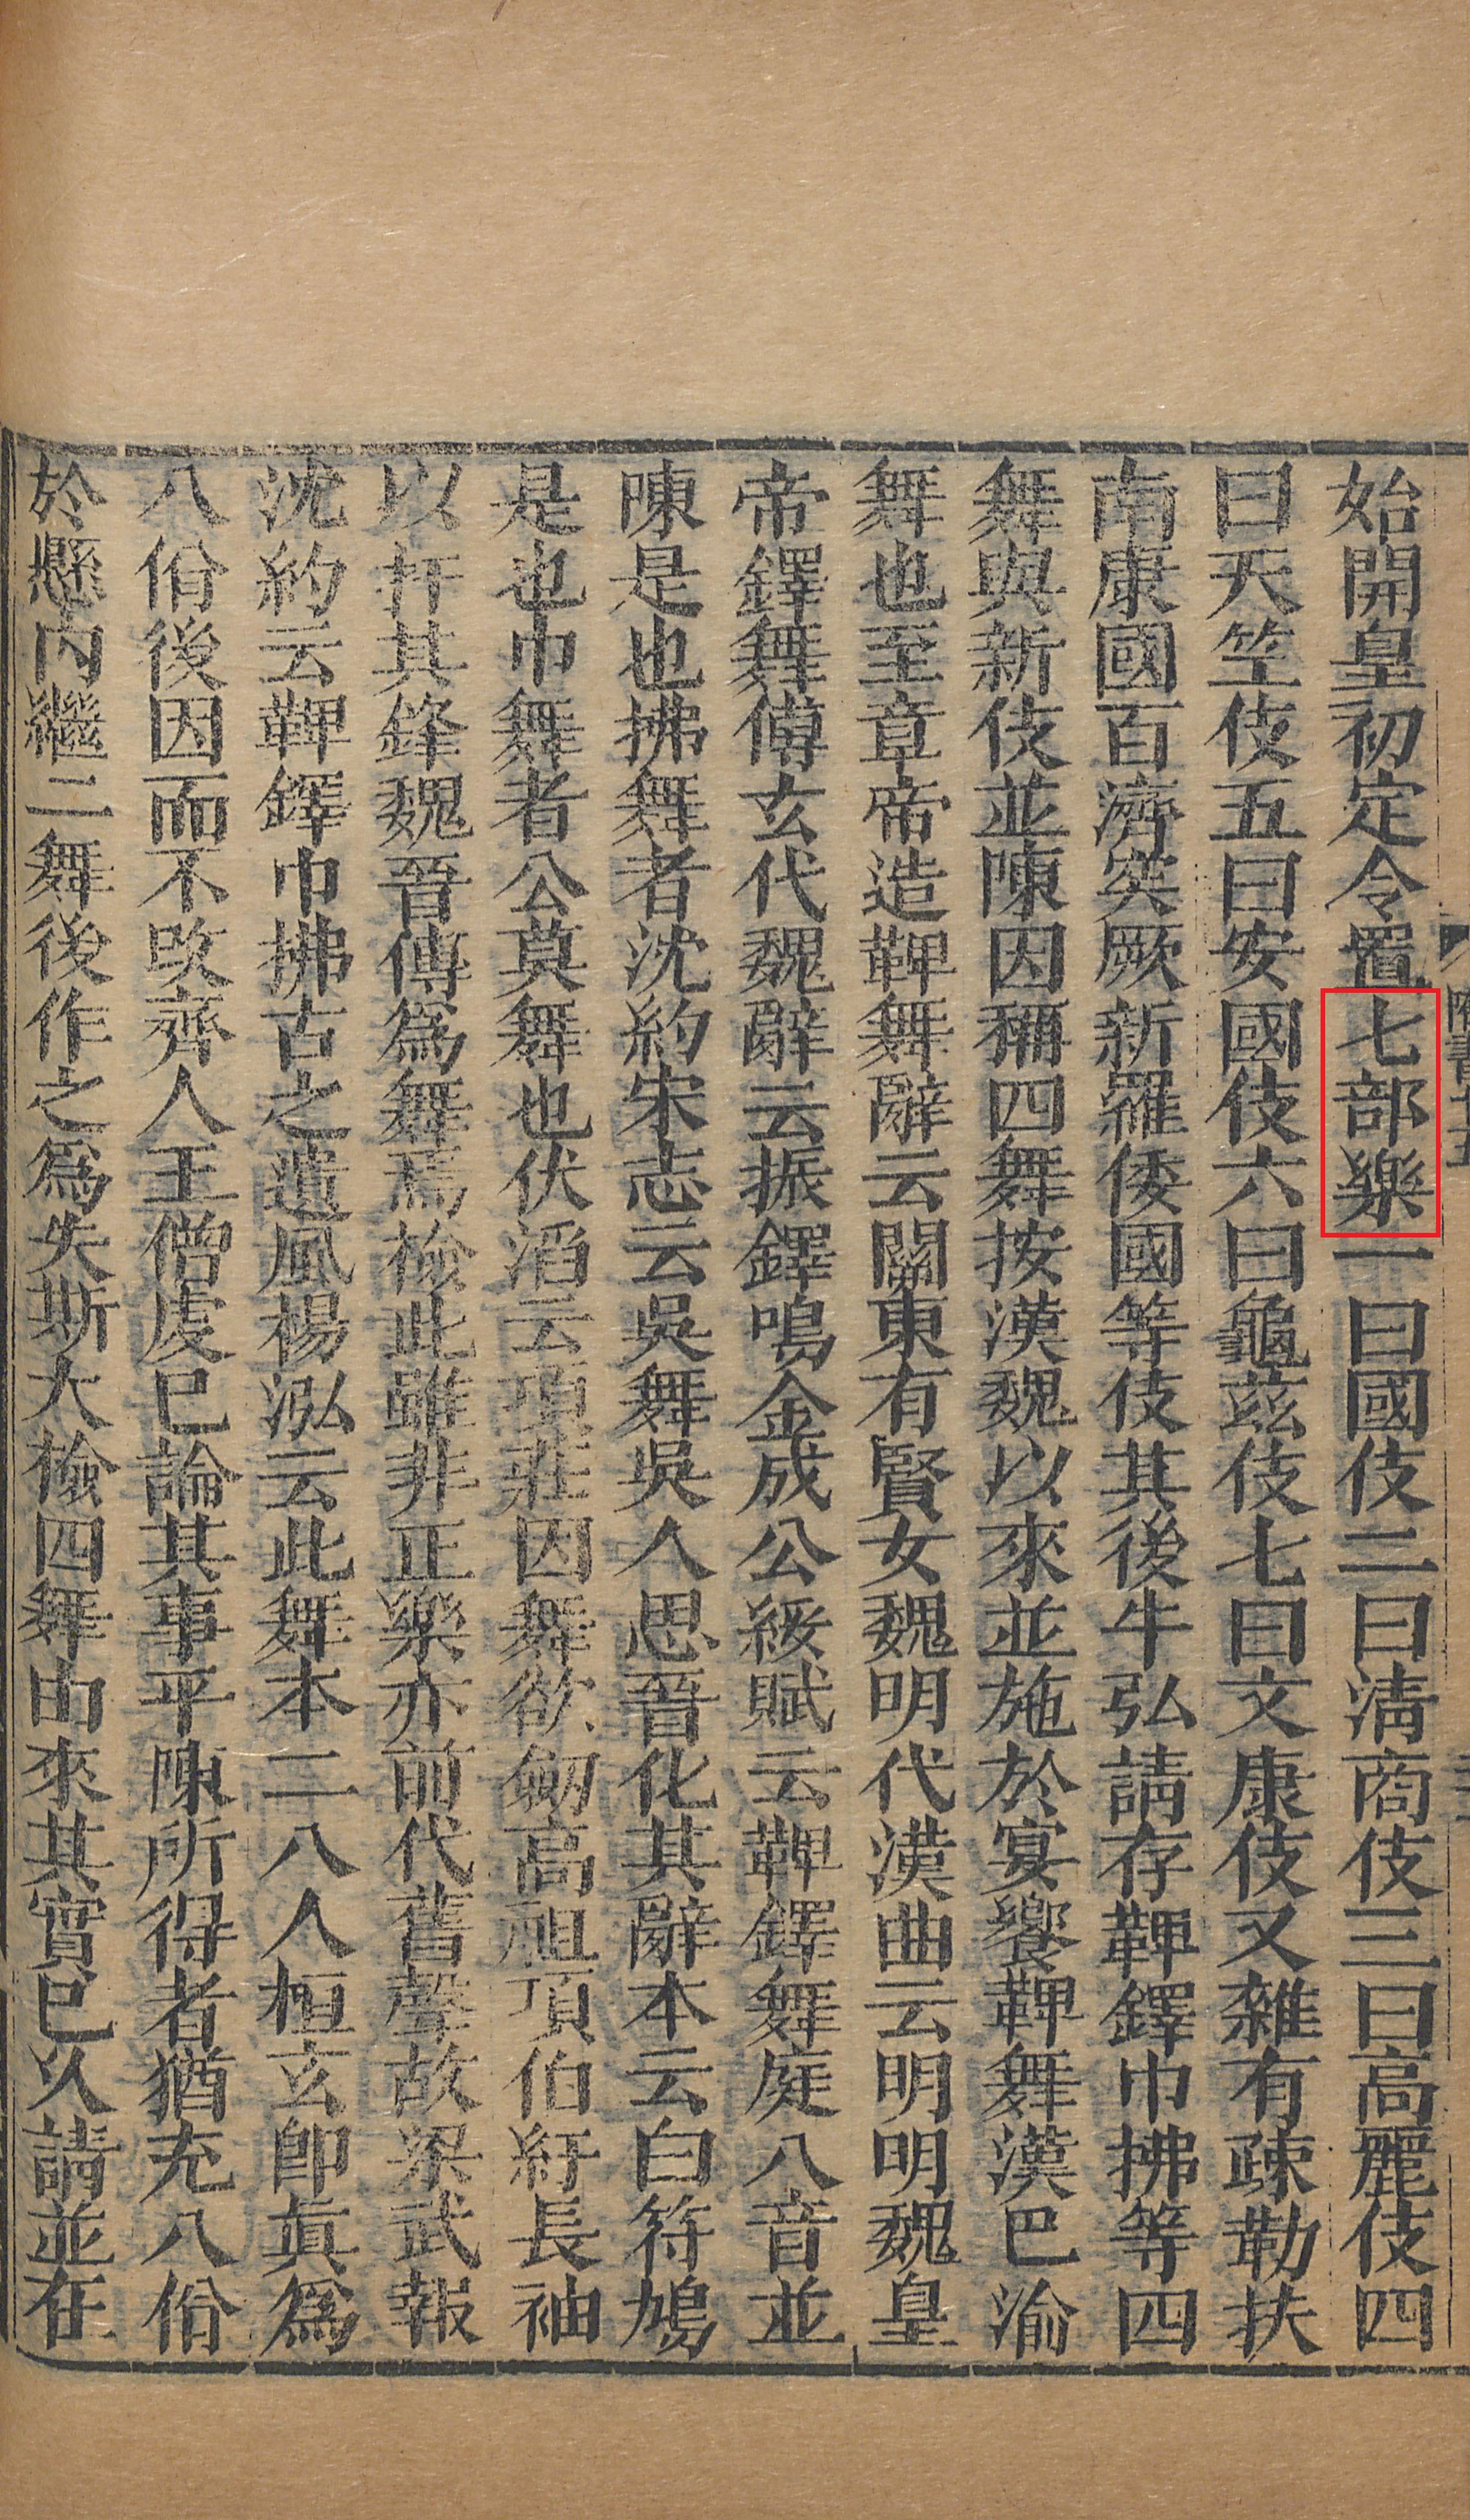 始開皇初定令置七部樂一曰國伎二曰清商伎三曰高麗伎四
曰天竺伎五曰安國伎六曰龜茲伎七曰文康伎又雜有疎勒扶
南康國百濟突厥新羅倭國等伎其後牛弘請存鞞鐸巾拂等四
舞與新伎並陳因稱四舞按漢魏以來並施於宴饗鞞舞漢巴渝
舞也至章帝造鞞舞辭云關東有賢女魏明代漢曲云明明魏皇
帝鐸舞傅玄代魏辭云振鐸鳴金成公綏賦云鞞鐸舞庭八音並
陳是也拂舞者沈約宋志云吳舞吳人思晉化其辭本云白符鳩
是也巾舞者公莫舞也伏滔云項莊因舞欲劒高祖項伯紆長袖
以扞其鋒魏晉傳為舞焉檢此雖非正樂亦前代舊聲故梁武報
沈約云鞞鐸巾拂古之遺風楊泓云此舞本二八人桓玄即眞為
八佾後因而不改齊人王僧虔已論其事平陳所得者猶充八佾
於懸內繼二舞後作之為失斯大檢四舞由來其實已久請並在